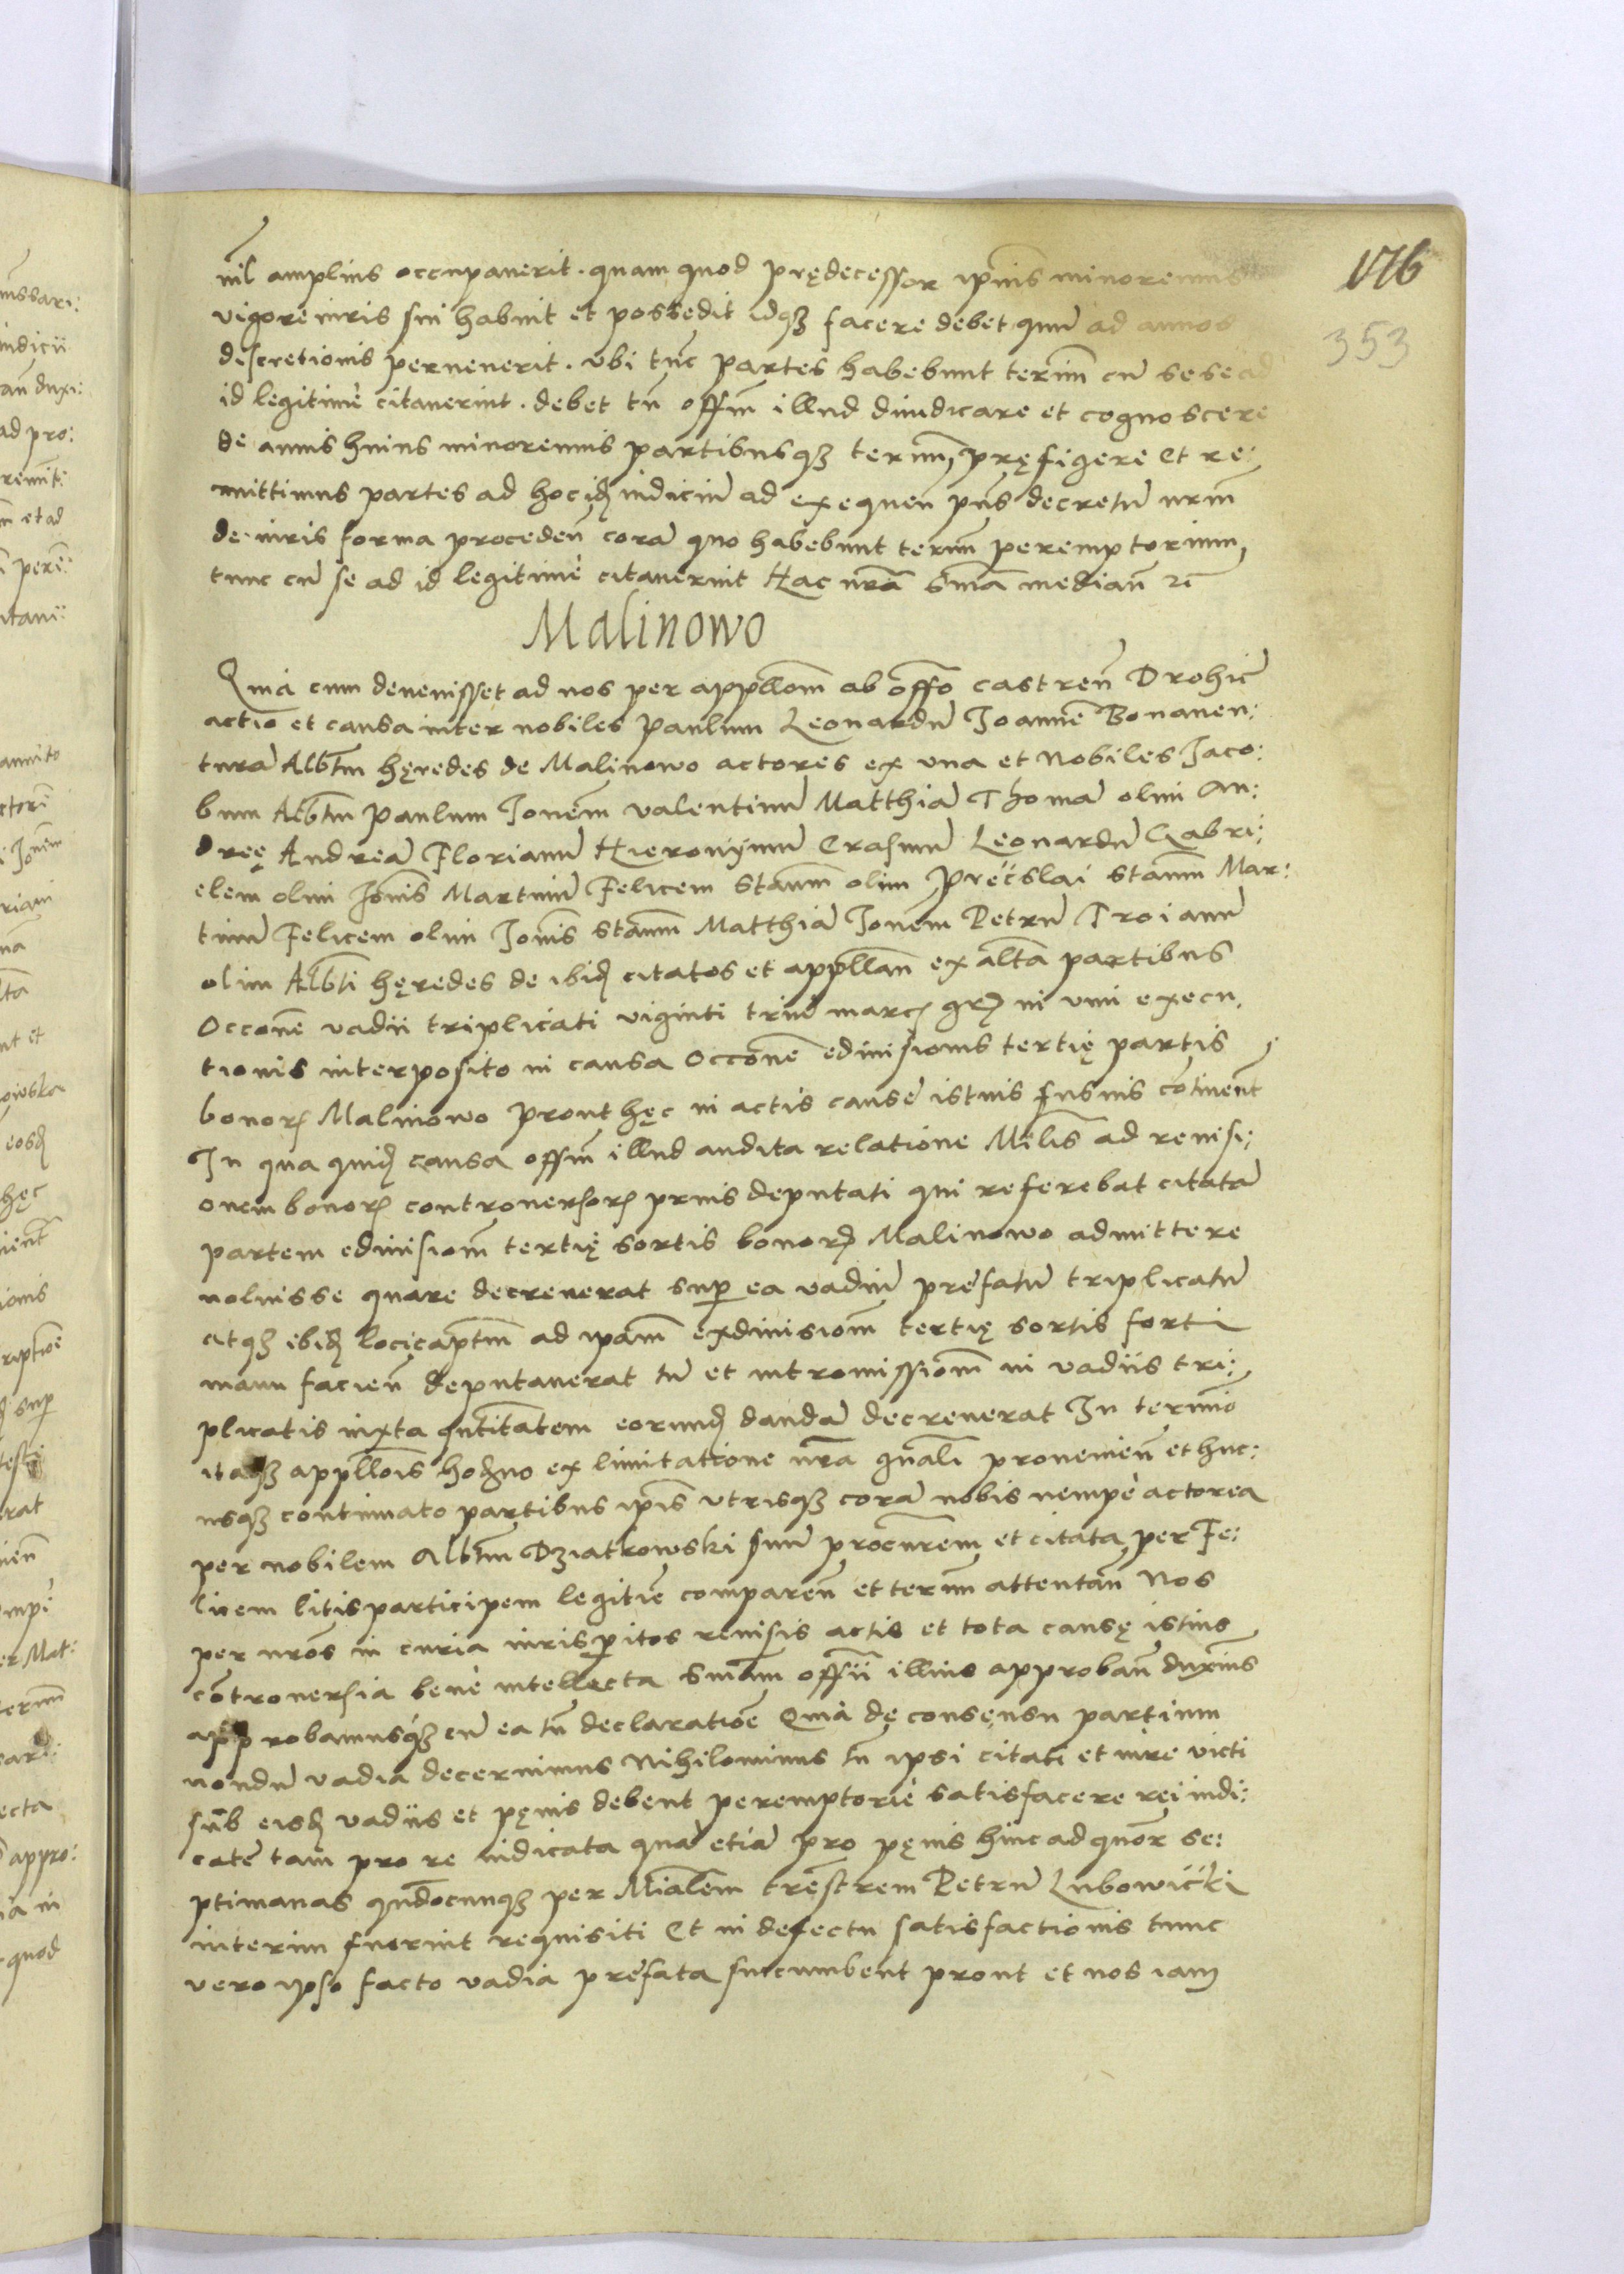 176
353
nil amplius occupaverit. quam quod prędecessor ip̄ius minorennis
vigore iuris sui habuit et possedit idqꝫ facere debet quū ad annos
descretionis pervenerit. ubi tūc partes habebunt terim̄ cū se se ad
id legitimè citaverint. debet tn̄ offm̄ illud diiudicare et cognoscere
de annis huius minorennis partibusqꝫ termn̄, pręfigere Et re:
mittimus partes ad hoc id iudiciū ad exequen̄ pn̄s decretū nr̄m
de iuris forma proceden̄ corā quo habebunt termn̄ peremptorium
tunc cū se ad id legitimè citaverint Hac nr̄a sn̄ia median̄ rc̄
Malinowo
Quia cum devenisset ad nos per appellom̄ ab offo castren̄ Drohic̄
actio et causa inter nobiles Paulum Leonardū Joannē Bonaven:
turā Albtm̄ hęredes de Malinowo actores ex una et Nobiles Jaco:
bum Albtm̄ Paulum Jonēm valentinū Matthiā Thomā olim An:
dreę Andreā Florianū Hieronijmū Erasmū Leonardū Gabri:
elem olim Jōnis Martinū Felicem stanm̄ olim Preċslai stanm̄ Mar:
tinū Felicem olim Jonis stanm̄ Matthiā Jonēm Petrū Troianū
olim Albti hęredes de ibid citatos et appellan̄ ex altā partibus
Occonē vadii triplicati viginti triū marc gr in vim execu,
tionis interposito in causa Occonē edivisionis tertię partis
bonor Malinowo prout hęc in actis causè istius fusius cōtinent
In qua quid causa offm̄ illud audita relatione Milis̄ ad revisi:
onem bonor controversor prius deputati qui referebat citatā
partem edivisiom̄ tertię sortis bonor Malinowo admittere
noluisse quare decreverat sup ea vadiū prefatū triplicatū
atqꝫ ibid locicaptm̄ ad ipam̄ exdivisiom̄ tertię sortis forti
manu facien̄ deputaverat tū et intromissiom̄ in vadiis tri:
plicatis iuxta qntitatem eorund dandā decreverat In termīo
itaqꝫ appellois̄ hodierno ex limitatione nr̄a gn̄ali provenien̄ et huc:
usqꝫ continuato partibus ip̄is utrisqꝫ corā nobis nempè actorea
per nobilem Albtm̄ Dziatkowski suū procurem̄ et citata per Fe:
licem litis participem legitīe comparen̄ et termn̄ attentan̄ Nos
per nr̄os in curia iurisperitos revisis actis et tota causę istius
cōtroversia bene intellecta sn̄iam officii illius approban̄ duximus
approbamusqꝫ cū ea tn̄ declaratioē Quia de consensu partium
nondū vadia decernimus Nihilominus tn̄ ipsi citati et iure victi
sub eisd vadiis et pęnis debent peremptoriè satisfacere rei iudi:
catè tam pro re iudicata quā etiā pro pęnis hinc ad quor̄ se:
ptimanas qn̄documqꝫ per Mialem̄ trestrem̄ Petrū Lubowiċki
interim fuerint requisiti Et in defectu satisfactionis tunc
vero ipso facto vadia prèfata succumbent prout et nos iam